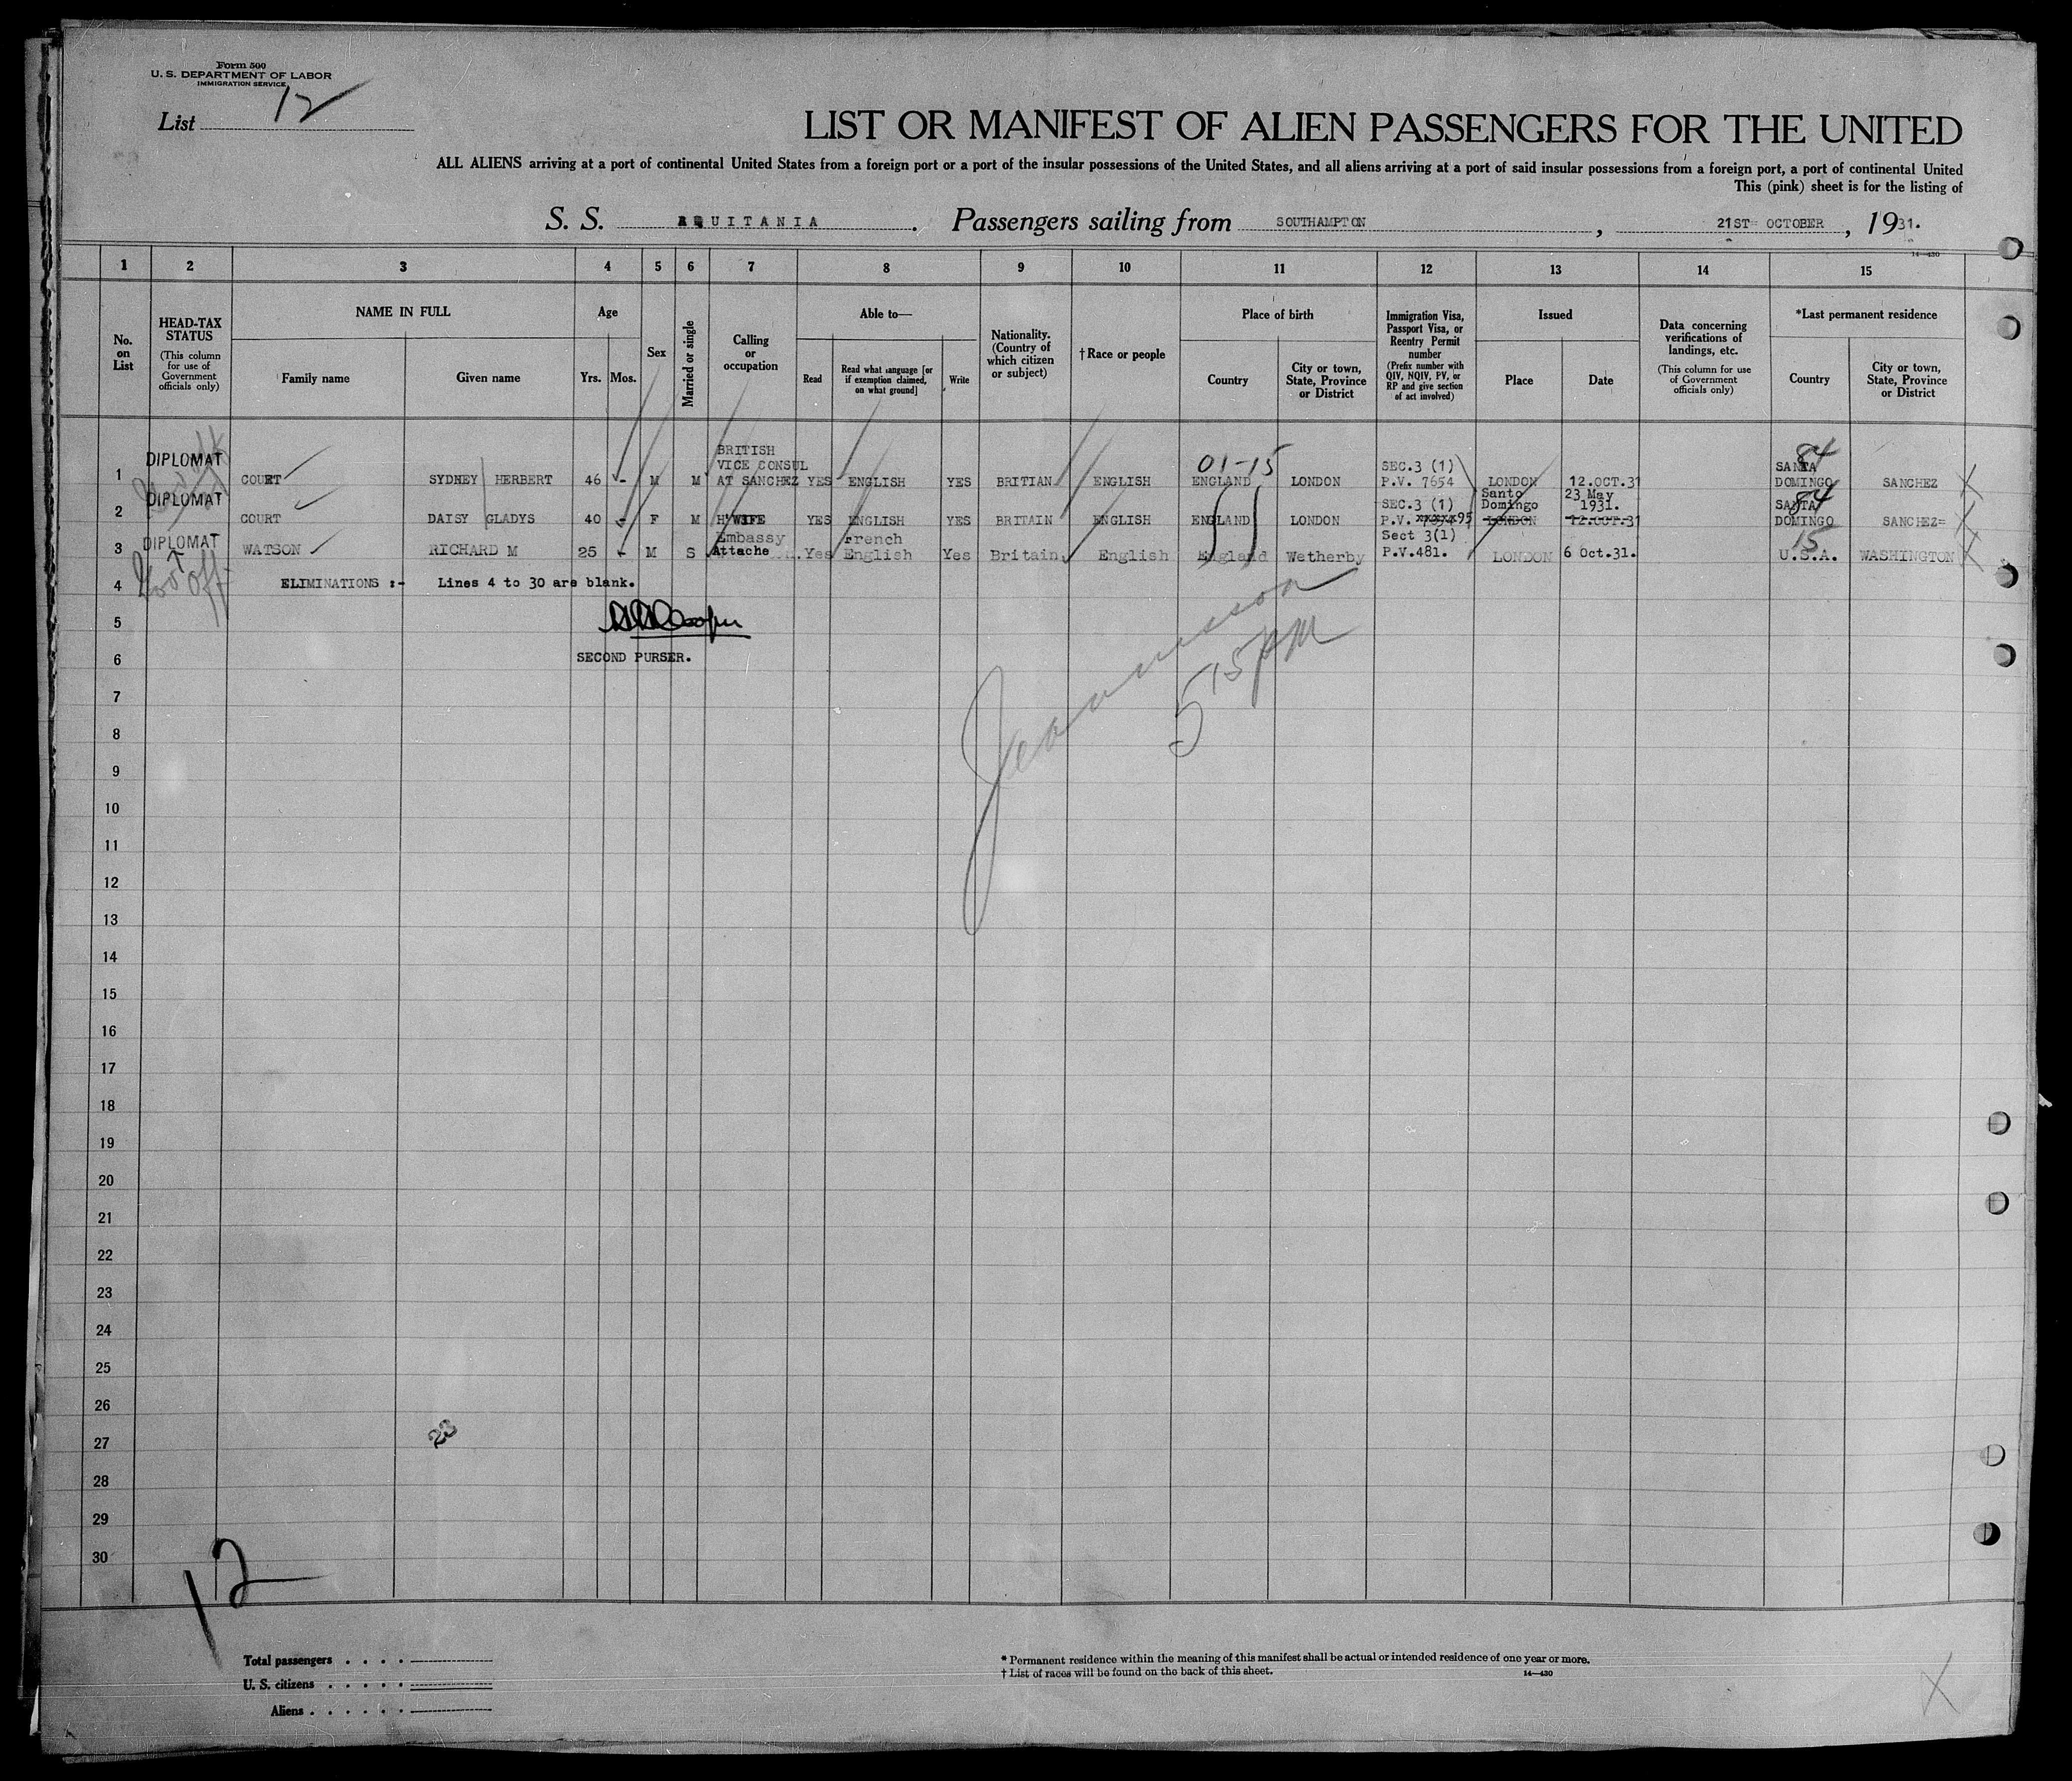 Form 500
U. S. DEPARTMENT OF LABOR
IMMIGRATION SERVICE
List 12
LIST OR MANIFEST OF ALIEN PASSENGERS FOR THE UNITED
ALL ALIENS arriving at a port of continental United States from a foreign port or a port of the insular possessions of the United States, and all aliens arriving at a port of said insular possessions from a foreign port, a port of continental United
This (pink) sheet is for the listing of
S. S. AQUITANIA. Passengers sailing from SOUTHAMPTON, 21ST= OCTOBER, 1931.
14—430
1 2 3 4 5 6 7 8 9 10 11 12 13 14 15
No. on List
HEAD-TAX STATUS
(This column for use of Government officials only)
NAME IN FULL
Family name
Given name
Age
Yrs.
Mos.
Sex
Married or single
Calling or occupation
Able to—
Read
Read what language [or if exemption claimed, on what ground]
Write
Nationality. (Country of which citizen or subject)
†Race or people
Place of birth
Country
City or town, State, Province or District
Immigration Visa, Passport Visa, or Reentry Permit number
(Prefix number with QIV, NQIV, PV, or RP and give section of act involved)
Issued
Place
Date
Data concerning verifications of landings, etc.
(This column for use of Government officials only)
*Last permanent residence
Country
City or town, State, Province or District
1 DIPLOMAT COURT SYDNEY HERBERT 46 - M M BRITISH VICE CONSUL AT SANCHEZ YES ENGLISH YES BRITIAN ENGLISH 01-15 ENGLAND LONDON SEC.3 (1) P.V. 7654 LONDON 12.OCT.31 84 SANTA DOMINGO SANCHEZ
2 DIPLOMAT COURT DAISY GLADYS 40 - F M H'WIFE YES ENGLISH YES BRITAIN ENGLISH ENGLAND LONDON SEC.3 (1) P.V. xxxxx95 Santo Domingo LONDON 23 May 1931. 12.OCT.31 84 SANTA DOMINGO SANCHEZ=
3 DIPLOMAT WATSON RICHARD M 25 - M S Embassy Attache Yes French English Yes Britain English England Wetherby Sect 3(1) P.V.481. LONDON 6 Oct.31. 15 U.S.A. WASHINGTON
4 ELIMINATIONS :- Lines 4 to 30 are blank.
5
6 SECOND PURSER.
5 15 PM
7
8
9
10
11
12
13
14
15
16
17
18
19
20
21
22
23
24
25
26
27
28
29
30
12
Total passengers
U. S. citizens
Aliens
* Permanent residence within the meaning of this manifest shall be actual or intended residence of one year or more.
† List of races will be found on the back of this sheet.
14—430